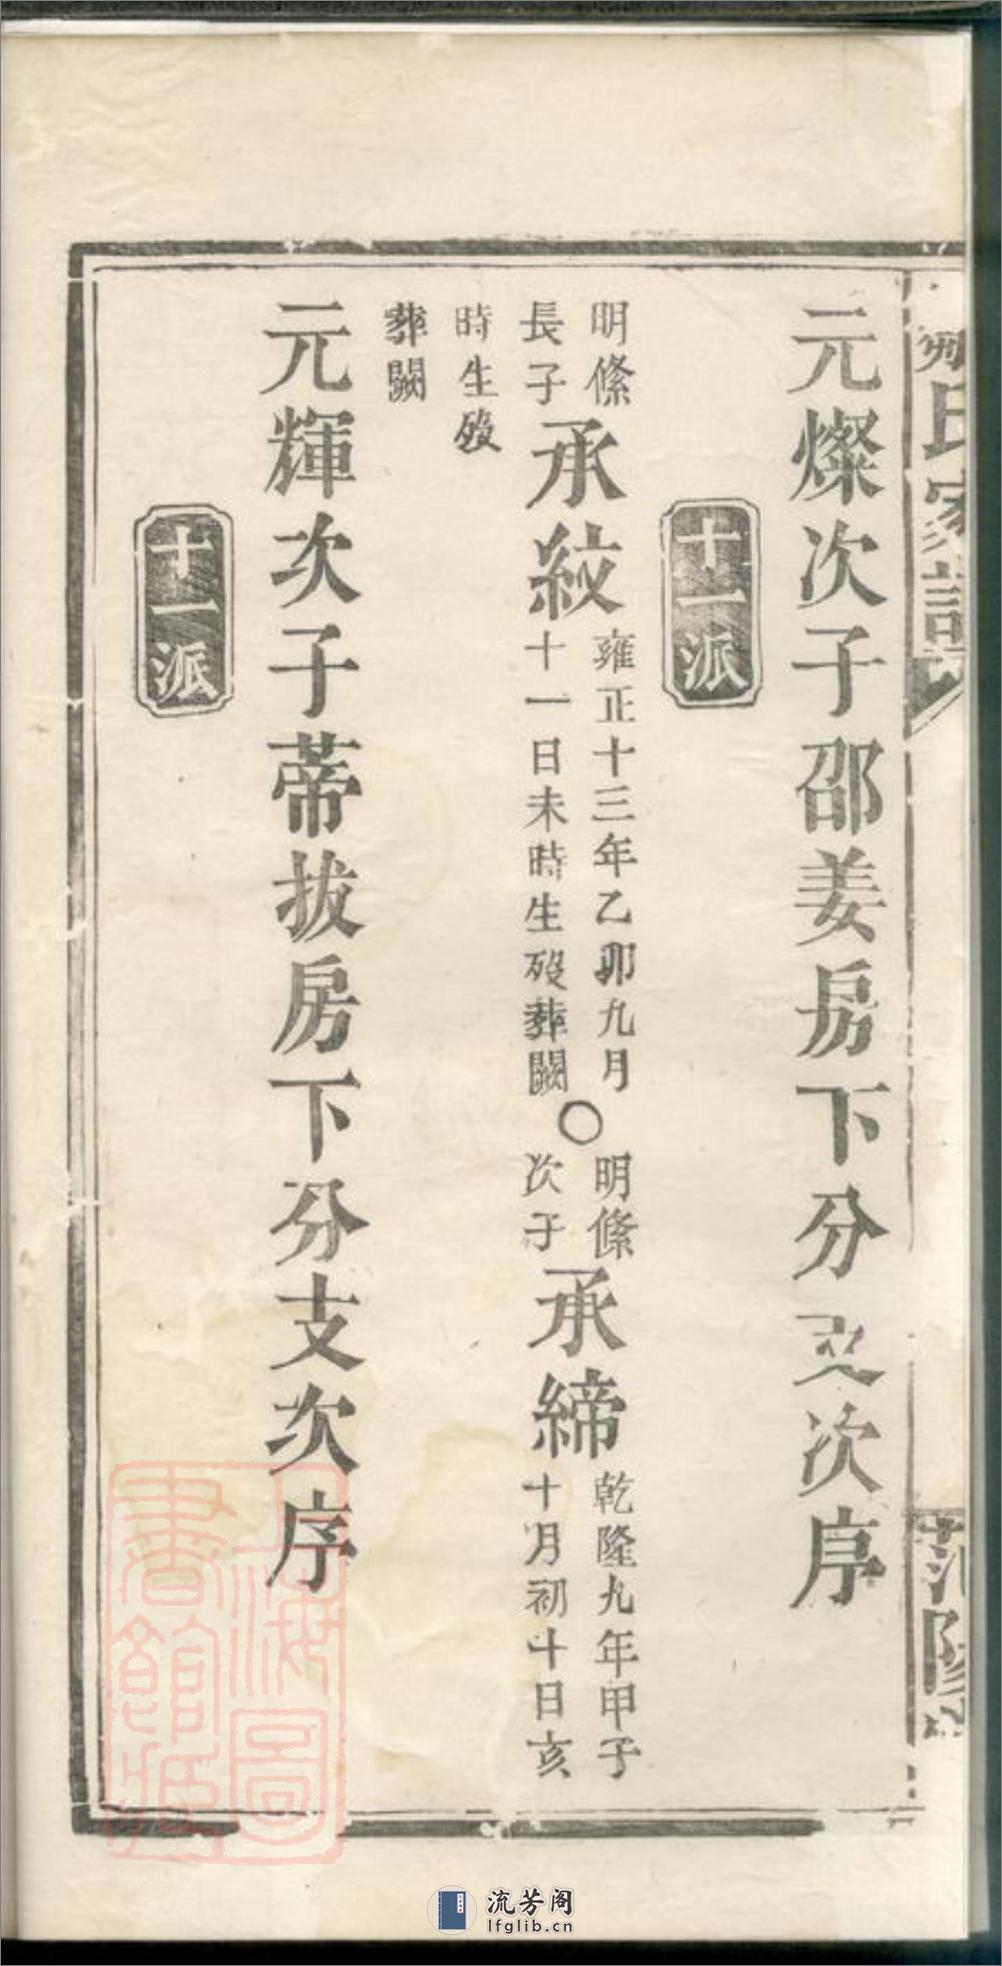 氏家譜
元燦次子邵姜房下分支次序
十一派
明絛
長子
承紋
雍正十三年乙卯九月
十一日未時生歿葬闕
○
明絛
次子
承締
乾隆九年甲子
十月初十日亥
時生歿
葬闕
元輝次子蒂拔房下分支次序
十一派
上海圖
書館藏
流芳阁
lfglib.cn